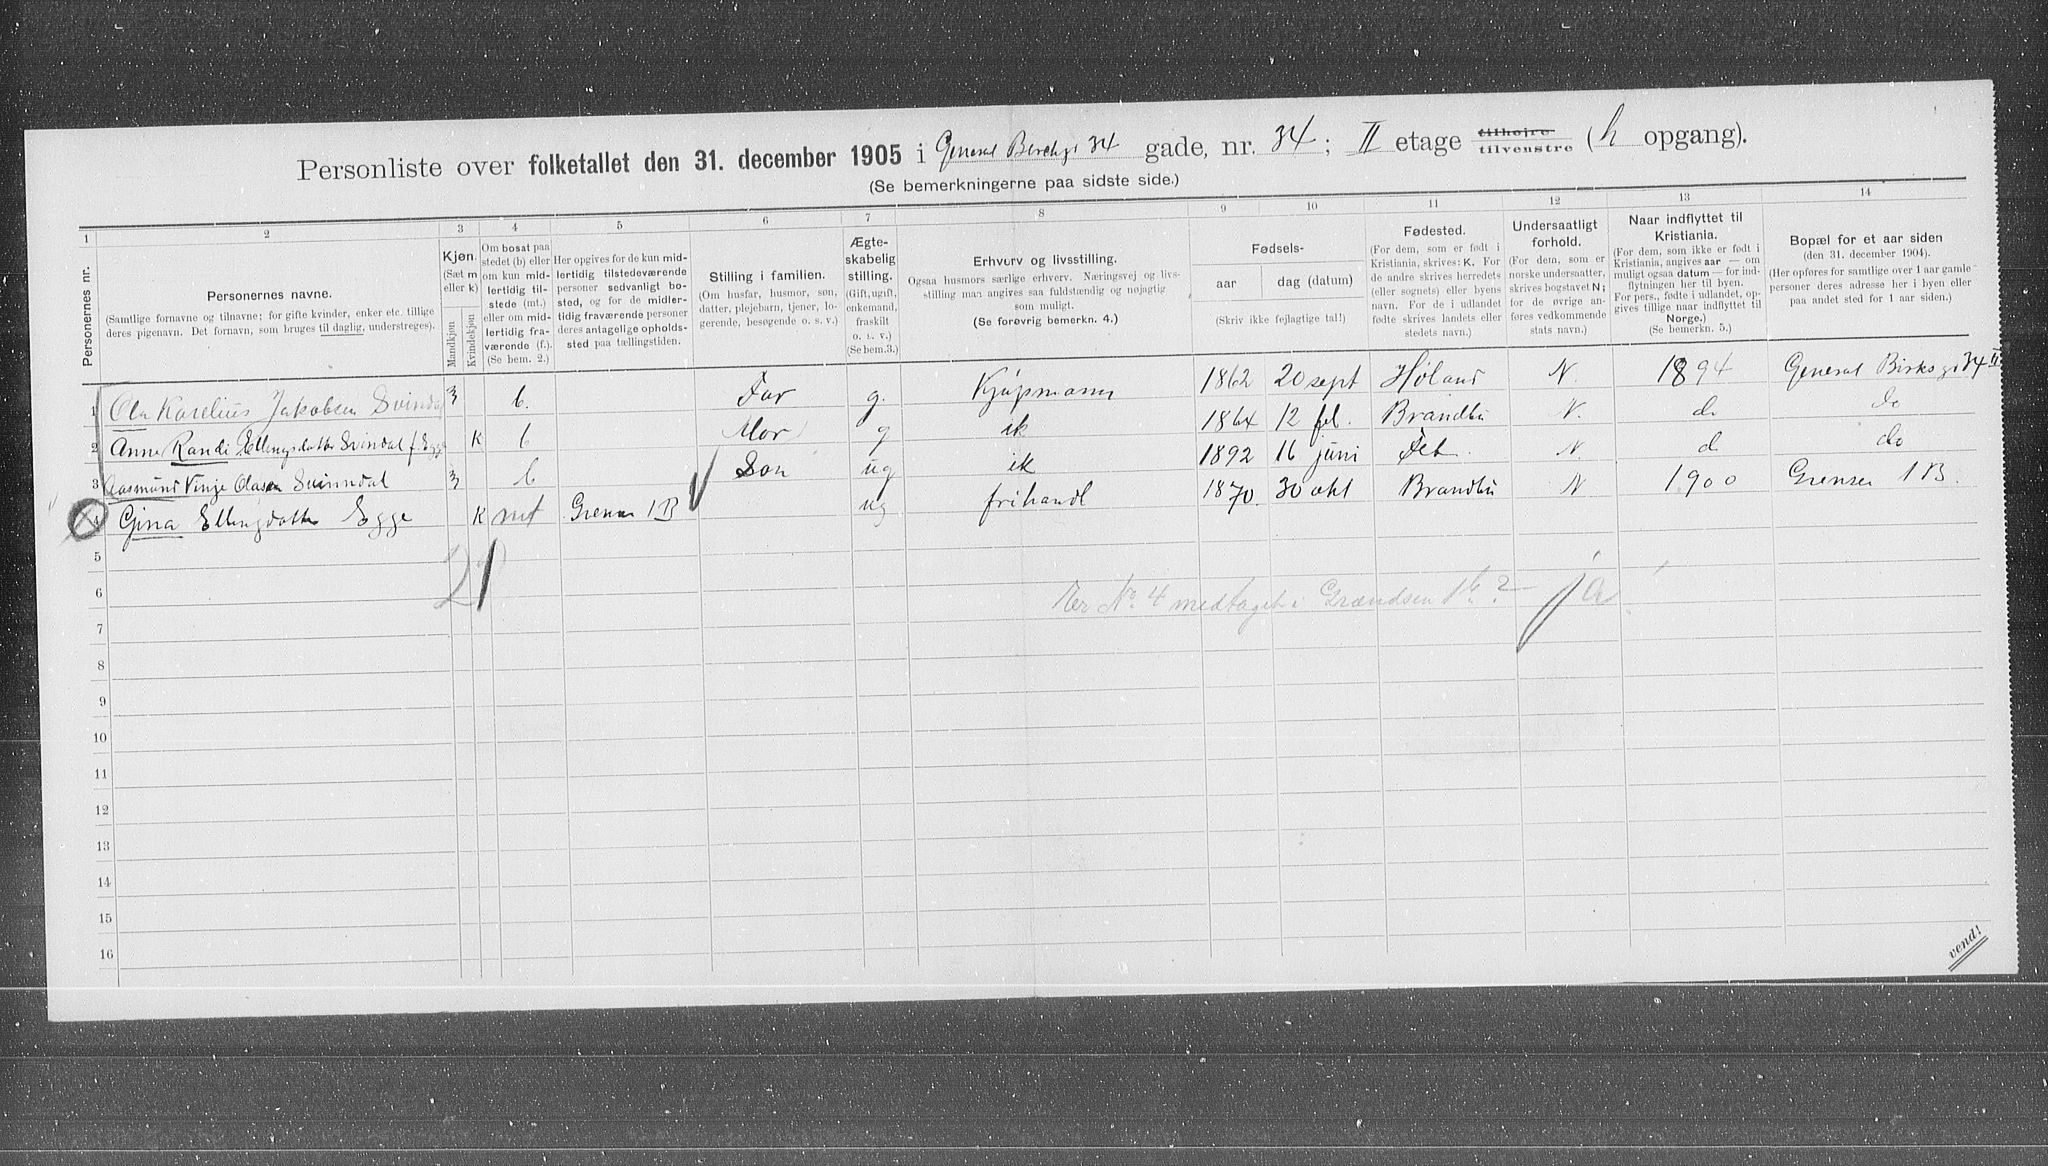 Personliste over folketallet den 31. december 1905 i General Birchsgt 34 gade, nr. 34; II etage tilhøjre tilvenstre (h opgang).
(Se bemerkningerne paa sidste side.)
1 2 3 4 5 6 7 8 9 10 11 12 13 14
Personernes nr.
Personernes navne.
(Samtlige fornavne og tilnavne; for gifte kvinder, enker etc. tillige
deres pigenavn. Det fornavn, som bruges til daglig, understreges).
Kjøn.
(Sæt m
eller k)
Mandkjøn
Kvindekjøn
Om bosat paa
stedet (b) eller
om kun mid-
lertidig til-
stede (mt.)
eller om mid-
lertidig fra-
værende (f.).
(Se bem. 2.)
Her opgives for de kun mid-
lertidig tilstedeværende
personer sedvanligt bo-
sted, og for de midler-
tidig fraværende personer
deres antagelige opholds-
sted paa tællingstiden.
Stilling i familien.
(Om husfar, husmor, søn,
datter, plejebarn, tjener, lo-
gerende, besøgende o. s. v.)
Ægte-
skabelig
stilling.
(Gift, ugift,
enkemand,
fraskilt
o. s. v.)
(Se bem.3.)
Erhvurv og livsstilling.
Ogsaa husmors særlige erhverv. Næringsvej og livs-
stilling maa angives saa fuldstændig og nøjagtig
som muligt.
(Se forøvrig bemerkn. 4.)
Fødsels-
aar dag (datum)
(Skriv ikke fejlagtige tal!)
Fødested.
(For dem, som er født i
Kristiania, skrives: K. For
de andre skrives herredets
(eller sognets) eller byens
navn. For de i udlandet
fødte skrives landets eller
stedets navn.)
Undersaatligt
forhold.
(For dem, som er
norske undersaatter,
skrives bogstavet N;
for de øvrige an-
føres vedkommende
stats navn.)
Naar indflyttet til
Kristiania.
(For dem, som ikke er født i
Kristiania, angives aar — om
muligt ogsaa datum — for ind-
flytningen her til byen.
For pers., fødte i udlandet, op-
gives tillige naar indflyttet til
Norge.)
(Se bemerkn. 5.)
Bopæl for et aar siden
(den 31. december 1904).
(Her opføres for samtlige over 1 aar gamle
personer deres adresse her i byen eller
paa andet sted for 1 aar siden.)
1 Ola Karelius Jakobsen Svindal m b. Far g. Kjøpmann 1862 20 sept Høland N. 1894 General Birksgt 34 II
2 Anne Randi Ellengsdatter Svindal f. Egge K b Mor g ik 1864 12 feb. Brandbu N. do do
3 Aasmund Vinje Olasen Svinndal m b Søn ug ik 1892 16 juni Det N d do
4 Gina Ellengdatter Egge K mt Grensen 1B ug frihandl 1870. 30 okt Brandbu N 1900 Grensen 1 B.
5
21
6 Er No. 4 medtaget i Grændsen 1 b? ja
7
8
9
10
11
12
13
14
15
16
vend!